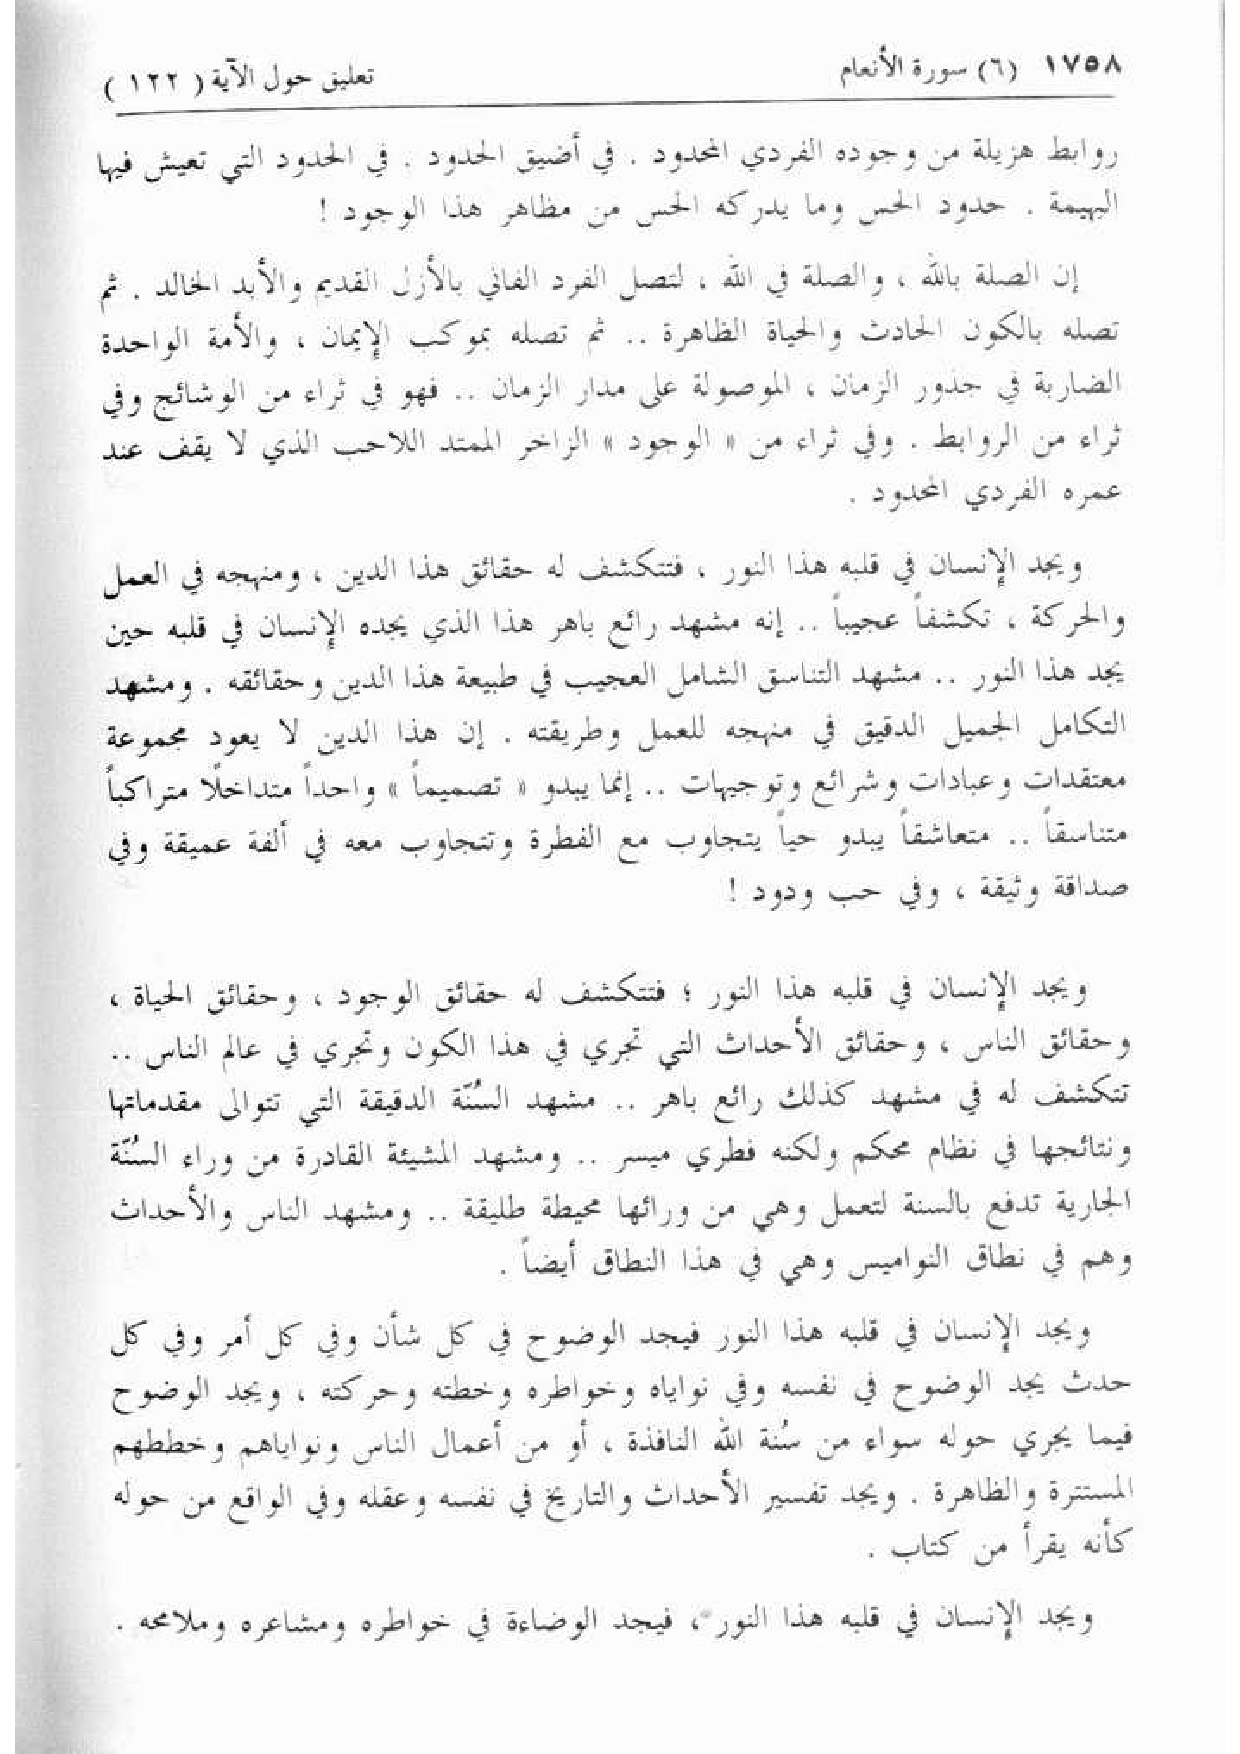 ١٧٥٨ (٦) سورة الأنعام
تعليق حول الآية ( ١٢٢ )
روابط هزيلة من وجوده الفردي المحدود . في أضيق الحدود . في الحدود التي تعيش فيها
البهيمة . حدود الحس وما يدركه الحس من مظاهر هذا الوجود !
إن الصلة بالله ، والصلة في الله ، لتصل الفرد الفاني بالأزل القديم والأبد الخالد . ثم
تصله بالكون الحادث والحياة الظاهرة .. ثم تصله بموكب الإيمان ، والأمة الواحدة
الضاربة في جذور الزمان ، الموصولة على مدار الزمان .. فهو في ثراء من الوشائج وفي
ثراء من الروابط . وفي ثراء من « الوجود » الزاخر الممتد اللاحب الذي لا يقف عند
عمره الفردي المحدود .
ويجد الإنسان في قلبه هذا النور ، فتتكشف له حقائق هذا الدين ، ومنهجه في العمل
والحركة ، تكشفاً عجيباً .. إنه مشهد رائع باهر هذا الذي يجده الإنسان في قلبه حين
يجد هذا النور .. مشهد التناسق الشامل العجيب في طبيعة هذا الدين وحقائقه . ومشهد
التكامل الجميل الدقيق في منهجه للعمل وطريقته . إن هذا الدين لا يعود مجموعة
معتقدات وعبادات وشرائع وتوجيهات .. إنما يبدو « تصميماً » واحداً متداخلًا متراكباً
متناسقاً .. متعاشقاً يبدو حياً يتجاوب مع الفطرة وتتجاوب معه في ألفة عميقة وفي
صداقة وثيقة ، وفي حب ودود !
ويجد الإنسان في قلبه هذا النور ؛ فتتكشف له حقائق الوجود ، وحقائق الحياة ،
وحقائق الناس ، وحقائق الأحداث التي تجري في هذا الكون وتجري في عالم الناس ..
تتكشف له في مشهد كذلك رائع باهر .. مشهد السُنّة الدقيقة التي تتوالى مقدماتها
ونتائجها في نظام محكم ولكنه فطري ميسر .. ومشهد المشيئة القادرة من وراء السُنّة
الجارية تدفع بالسنة لتعمل وهي من ورائها محيطة طليقة .. ومشهد الناس والأحداث
وهم في نطاق النواميس وهي في هذا النطاق أيضاً .
ويجد الإنسان في قلبه هذا النور فيجد الوضوح في كل شأن وفي كل أمر وفي كل
حدث يجد الوضوح في نفسه وفي نواياه وخواطره وخطته وحركته ، ويجد الوضوح
فيما يجري حوله سواء من سُنة الله النافذة ، أو من أعمال الناس ونواياهم وخططهم
المستترة والظاهرة . ويجد تفسير الأحداث والتاريخ في نفسه وعقله وفي الواقع من حوله
كأنه يقرأ من كتاب .
ويجد الإنسان في قلبه هذا النور ، فيجد الوضاءة في خواطره ومشاعره وملامحه .